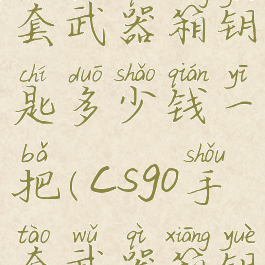 套武器箱钥
chí duō shǎo qián yī
匙多少钱一
bǎ shǒu
把(CSGO手
tào wǔ qì xiāng yuè
套武器箱钥